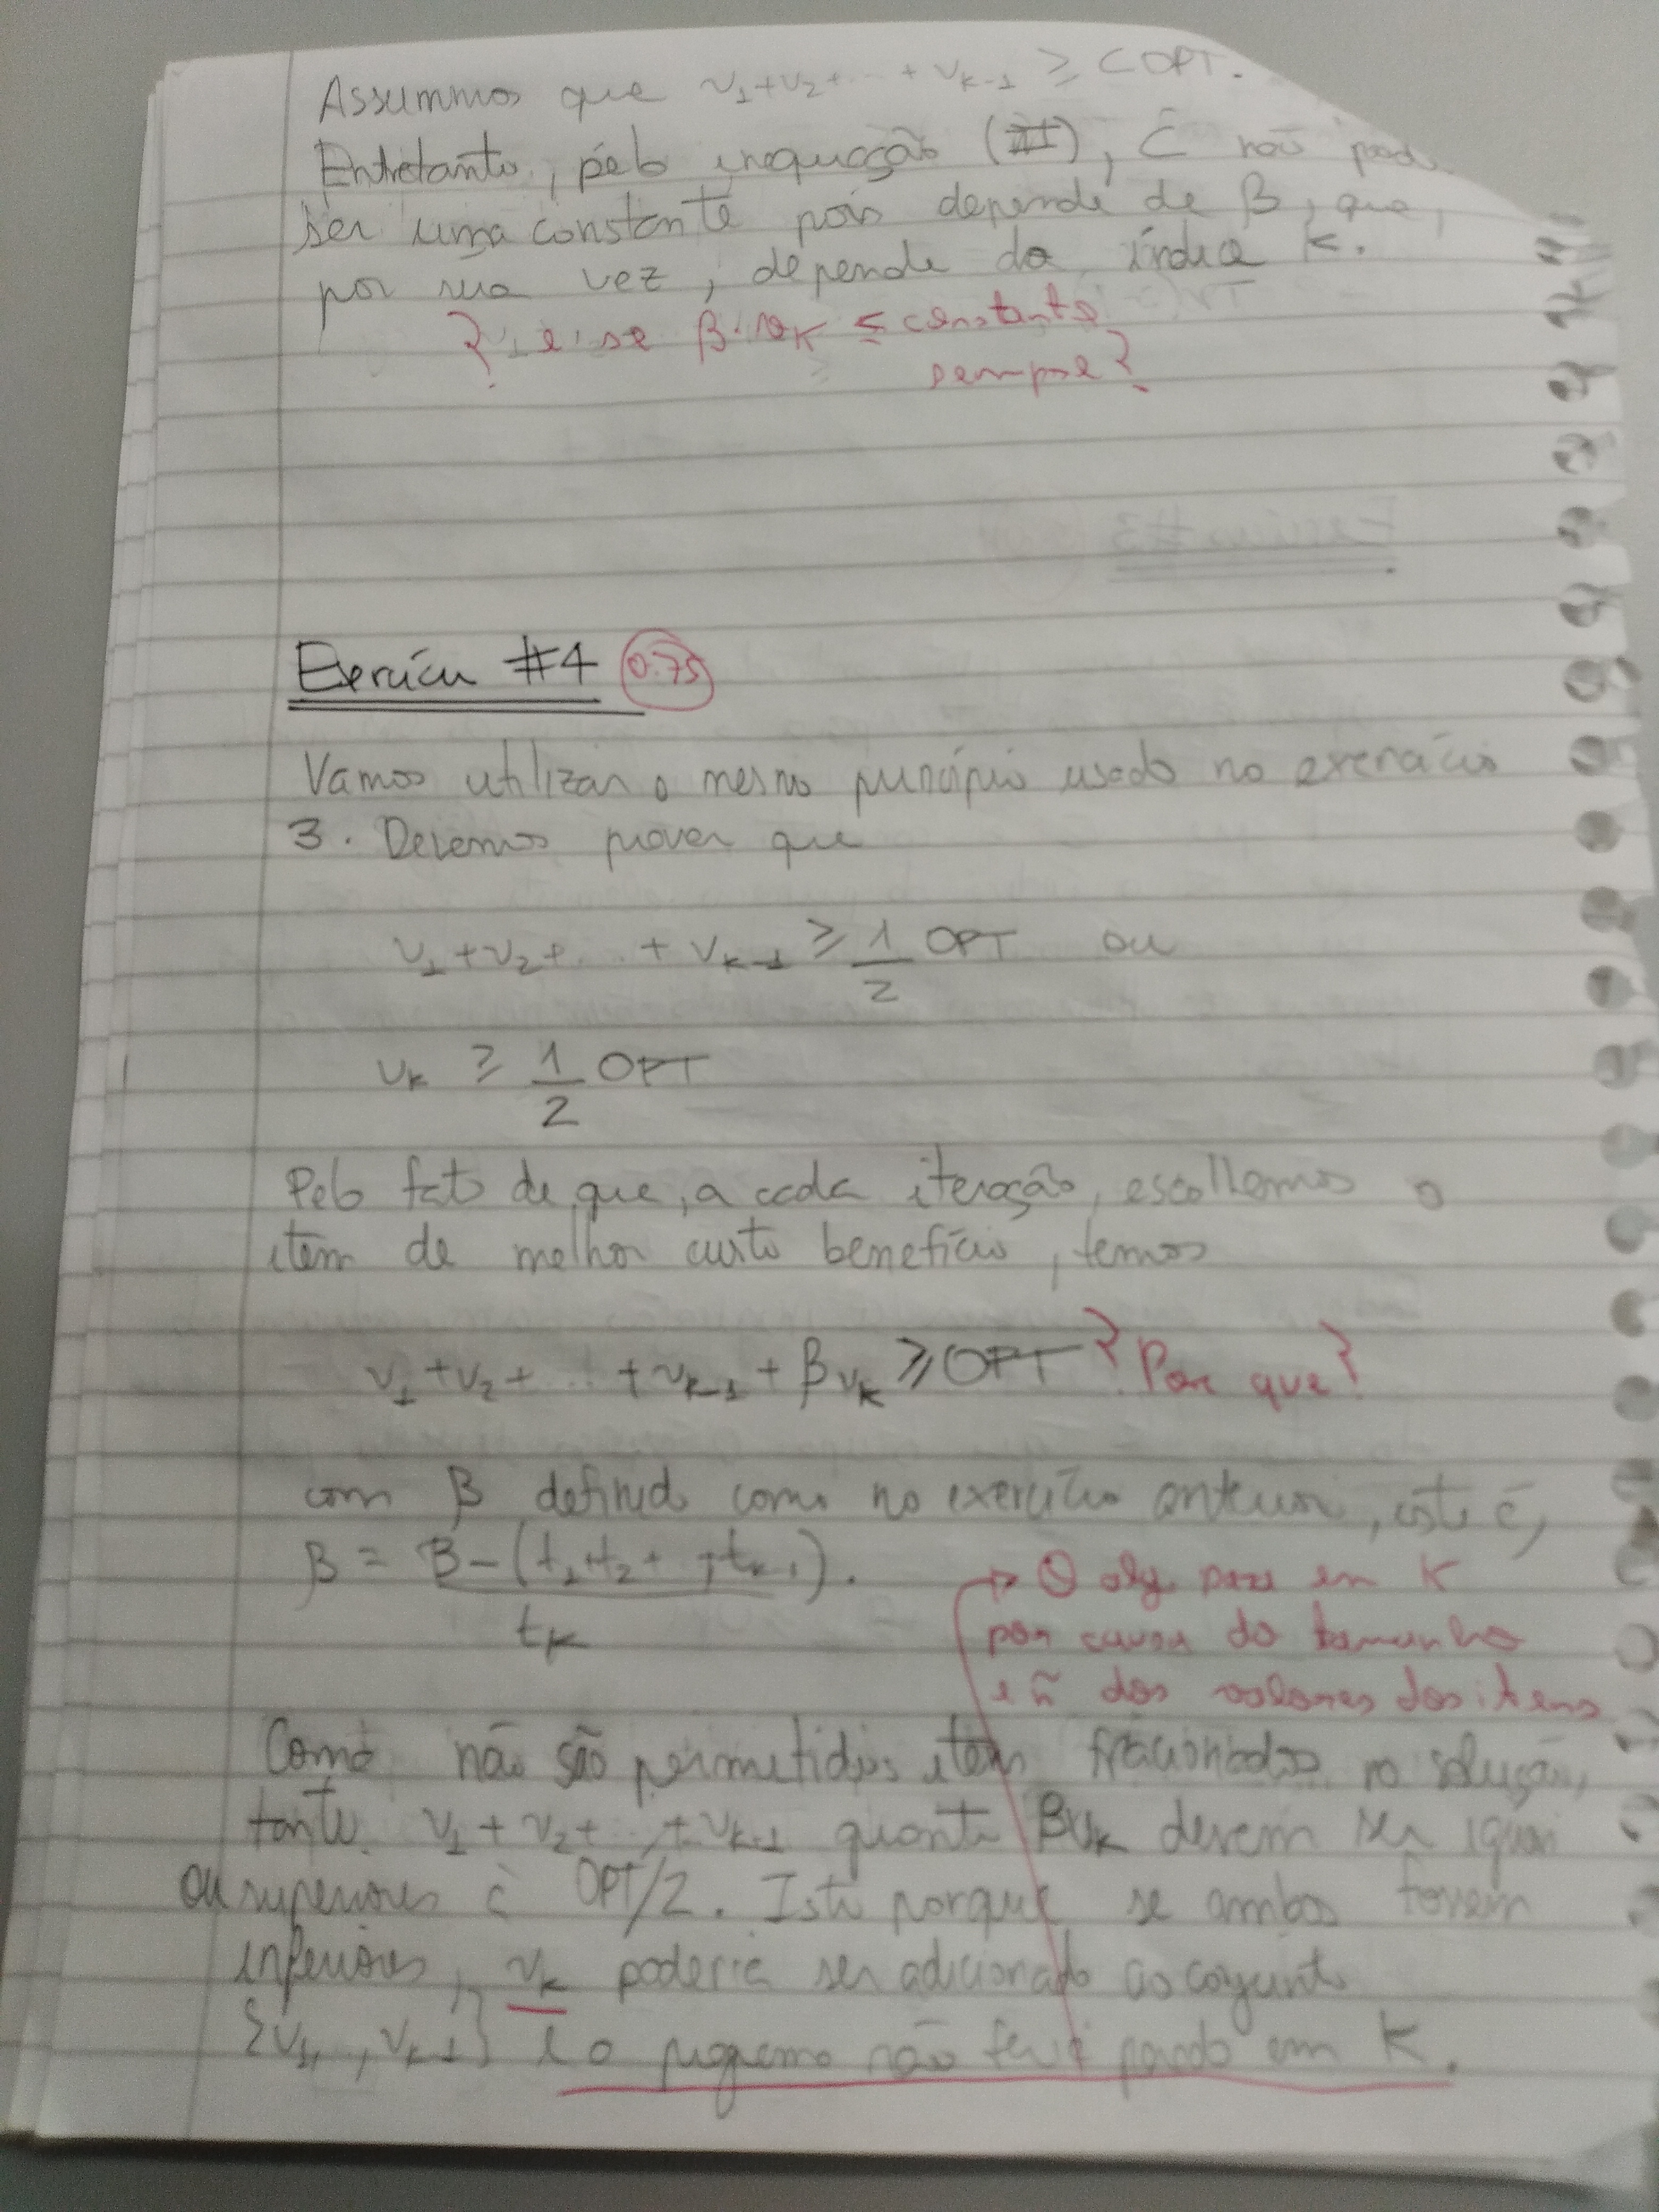 Assumimos que v1+v2+...+vk-1 ≥ COPT.
Entretanto, pela inequação (II), C não
ser uma constante pois depende de β, que,
por sua vez, depende do índice K.
? e se β·vK ≤ constante
sempre?
Exercício #4 0.75
Vamos utilizar o mesmo princípio usado no exercício
3. Devemos provar que
v1+v2+...+vk-1 ≥ 1/2 OPT ou
vk ≥ 1/2 OPT
Pelo fato de que, a cada iteração, escolhemos o
item de melhor custo benefício, temos
v1+v2+...+vk-1+βvk ≥ OPT ? Por que?
com β definido como no exercício anterior, isto é,
β = B-(t1+t2+...+tk-1) / tk.
→ O alg. para em K
por causa do tamanho
e ñ dos valores dos itens
Como não são permitidos itens fracionados na solução,
tanto v1+v2+...+vk-1 quanto βvk devem ser iguais
ou superiores à OPT/2. Isto porque se ambos forem
inferiores, vk poderia ser adicionado ao conjunto
{v1,...,vk-1} e o programa não teria parado em K.
Exercício #3